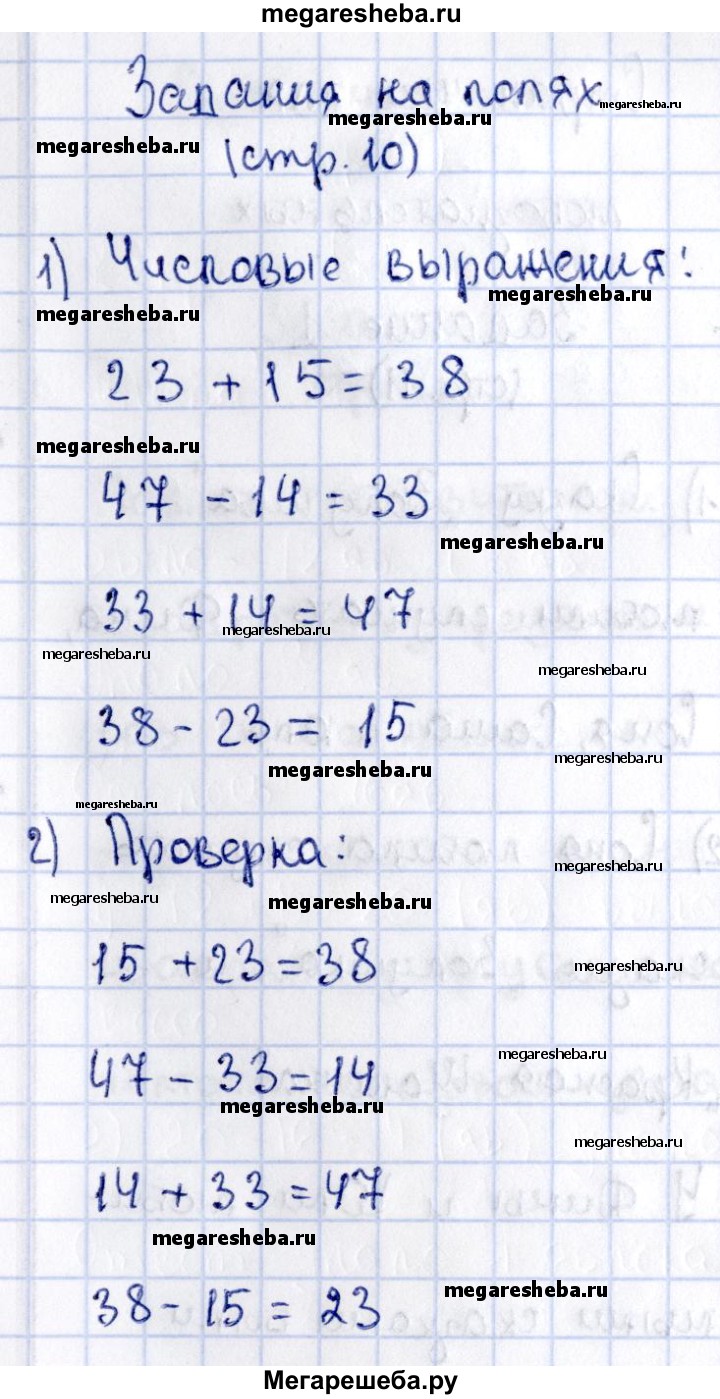 megaresheba.ru
Задания на полях
megaresheba.ru
megaresheba.ru
megaresheba.ru
(стр. 10)
1) Числовые выражения:
megaresheba.ru
megaresheba.ru
23 + 15 = 38
megaresheba.ru
47 - 14 = 33
megaresheba.ru
33 + 14 = 47
megaresheba.ru
megaresheba.ru
megaresheba.ru
38 - 23 = 15
megaresheba.ru
megaresheba.ru
megaresheba.ru
2) Проверка:
megaresheba.ru
megaresheba.ru
megaresheba.ru
15 + 23 = 38
megaresheba.ru
megaresheba.ru
47 - 33 = 14
megaresheba.ru
megaresheba.ru
14 + 33 = 47
megaresheba.ru
38 - 15 = 23
megaresheba.ru
Мегарешеба.ру